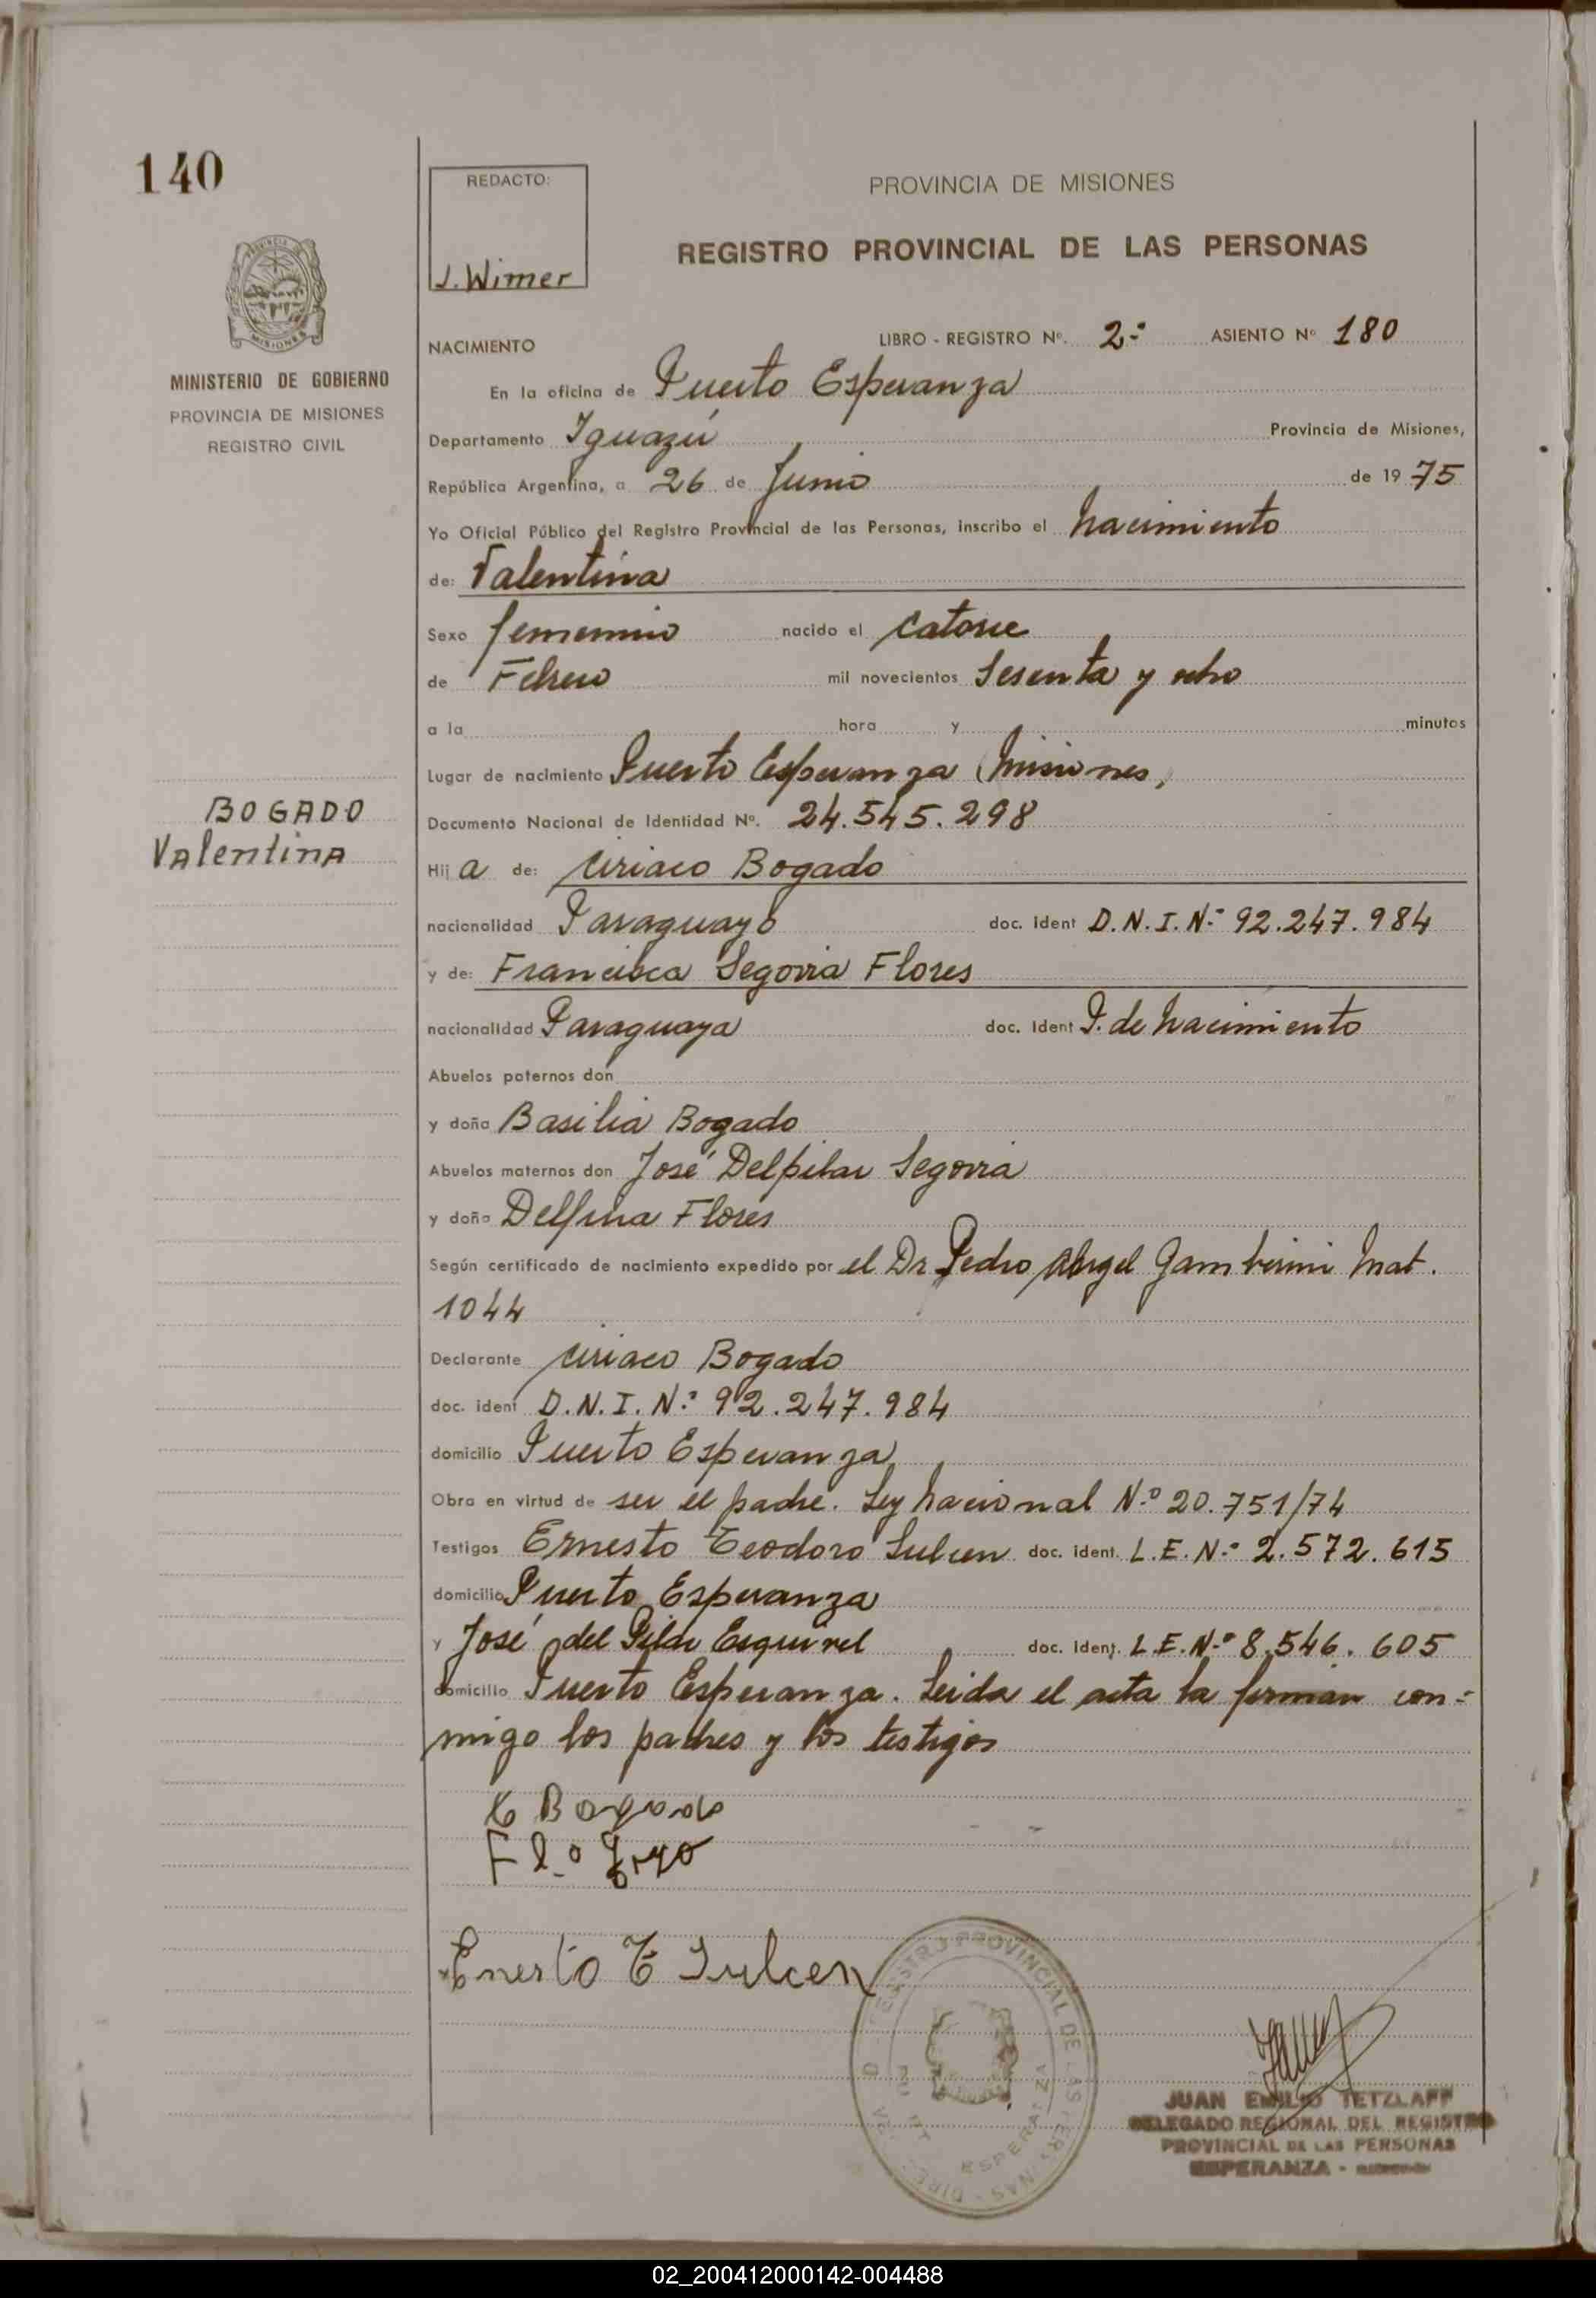 140
REDACTO:
J. Wimer
PROVINCIA DE MISIONES
REGISTRO PROVINCIAL DE LAS PERSONAS
MISIONES
MINISTERIO DE GOBIERNO
PROVINCIA DE MISIONES
REGISTRO CIVIL
NACIMIENTO
LIBRO - REGISTRO Nº. 2º ASIENTO Nº 180
En la oficina de Puerto Esperanza
Departamento Iguazú Provincia de Misiones,
República Argentina, a 26 de Junio de 19 75
Yo Oficial Público del Registro Provincial de las Personas, inscribo el nacimiento
de: Valentina
Sexo femenino nacido el catorce
de Febrero mil novecientos sesenta y ocho
a la hora y minutos
Lugar de nacimiento Puerto Esperanza (Misiones,
BOGADO
Valentina
Documento Nacional de Identidad Nº. 24.545.298
Hij a de: Ciriaco Bogado
nacionalidad Paraguayo doc. ident D.N.I.N.º 92.247.984
y de: Francisca Segovia Flores
nacionalidad Paraguaya doc. Ident P. de nacimiento
Abuelos paternos don
y doña Basilia Bogado
Abuelos maternos don José Delpilar Segovia
y doña Delfina Flores
Según certificado de nacimiento expedido por el Dr Pedro Angel Gamberini Mat.
1044
Declarante Ciriaco Bogado
doc. ident D.N.I.N.º 92.247.984
domicilio Puerto Esperanza
Obra en virtud de ser el padre. Ley Nacional N.º 20.751/74
Testigos Ernesto Teodoro doc. ident. L.E.N.º 2.572.615
domicilio Puerto Esperanza
y José del Pilar Esquivel doc. Ident. L.E.N.º 8.546.605
domicilio Puerto Esperanza. Leida el acta la firman con-
migo los padres y los testigos
Bogado
JUAN EMILIO TETZLAFF
DELEGADO REGIONAL DEL REGISTRO
PROVINCIAL DE LAS PERSONAS
ESPERANZA -
02_200412000142-004488